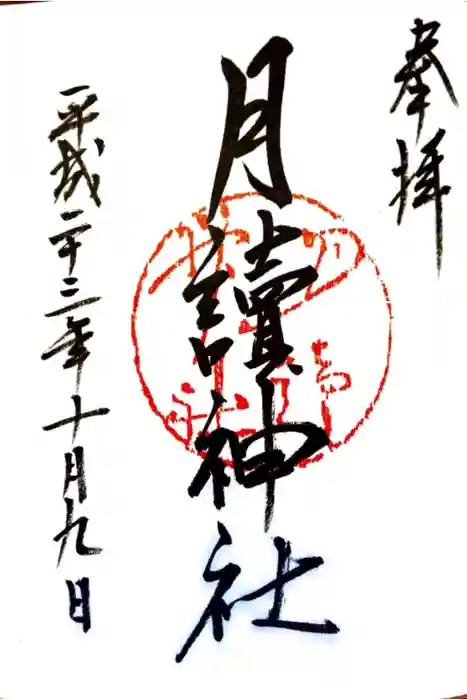 奉拝
月讀神社
平成二十三年十月九日